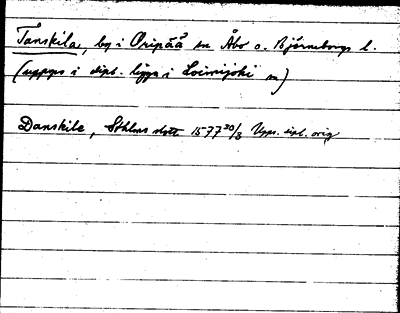 Tanskila, by i Oripää sn Åbo o. Björneborgs l.
(uppges i dipl. ligga i Loimijoki sn)
Danskile, Sthlms slott 1577 30/3 Upps. dipl. orig